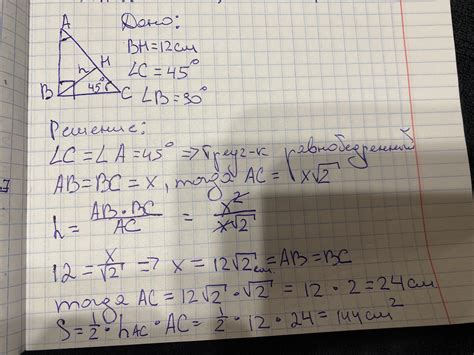 A
Дано:
BH=12см
H
h
∠C=45°
45°
B
C
∠B=90°
Решение:
∠C=∠A=45° ⇒ треуг-к равнобедренный
AB=BC=x, тогда AC=x√2
h = AB·BC/AC = x²/x√2
12 = x/√2 ⇒ x = 12√2 см = AB=BC
тогда AC = 12√2 · √2 = 12 · 2 = 24 см
S = 1/2 · h_AC · AC = 1/2 · 12 · 24 = 144 см²